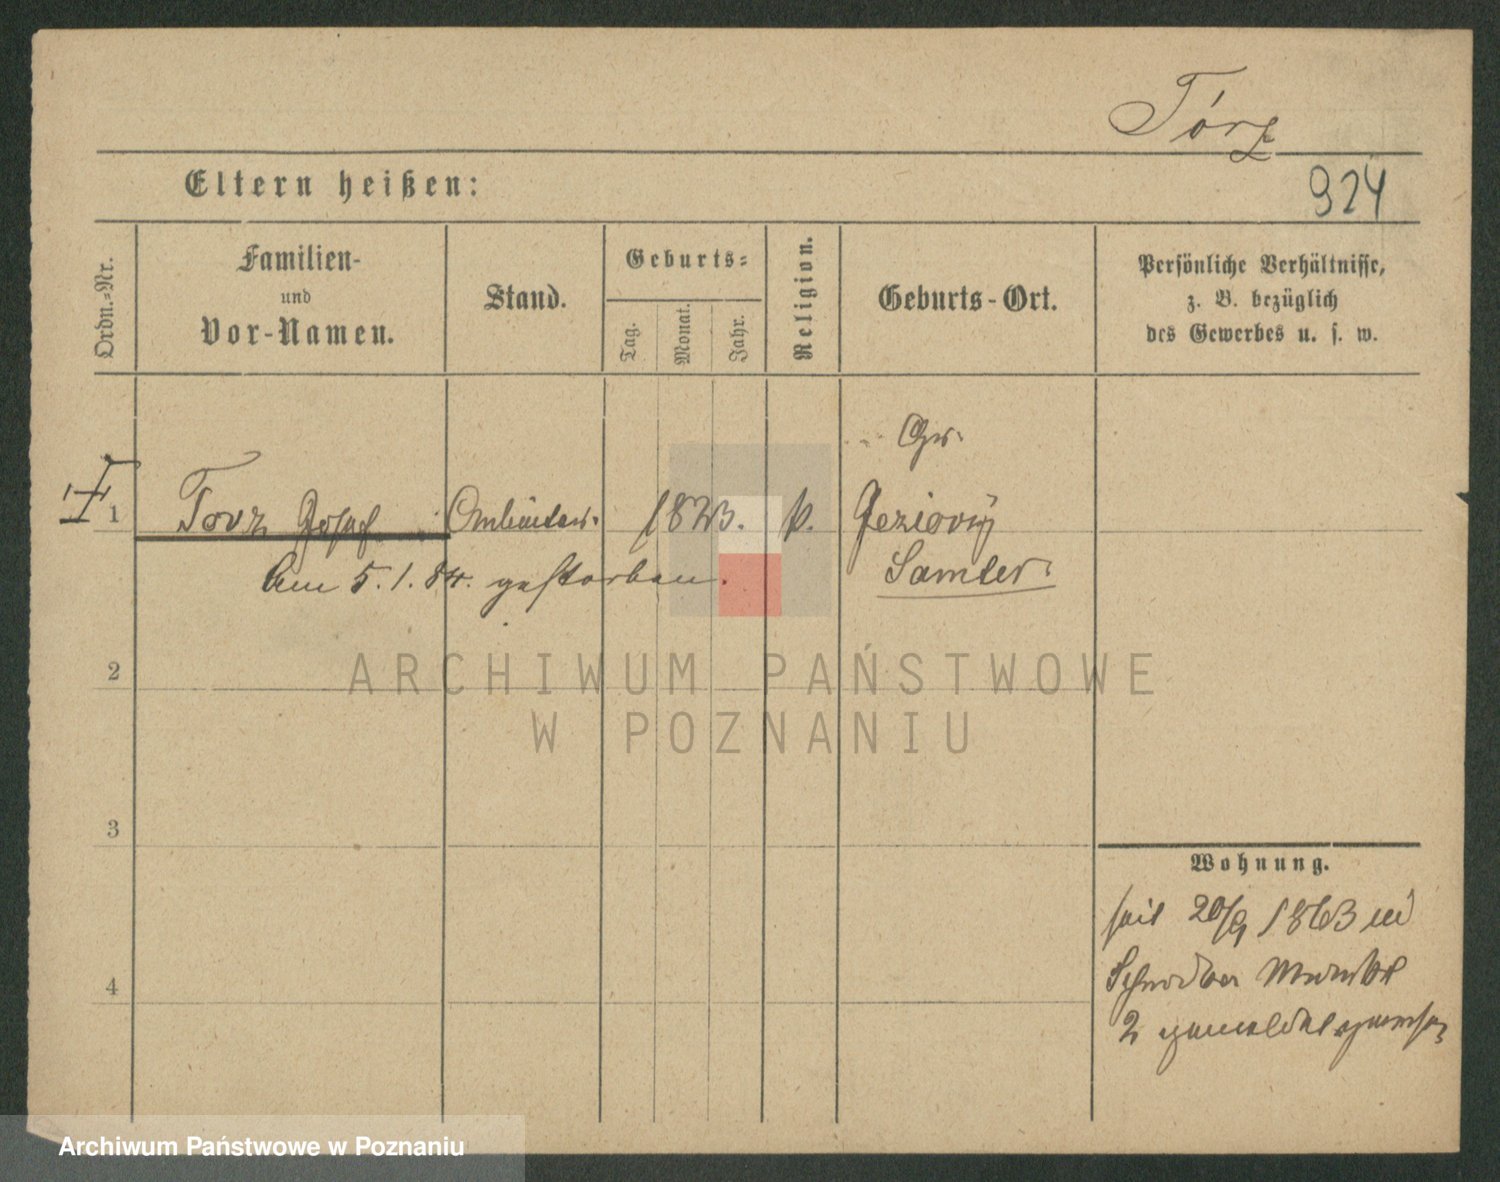 Tórz
Eltern heißen:
924
Ordn.-Nr.
Familien-
und
Vor-Namen.
Stand.
Geburts-
Tag.
Monat.
Jahr.
Religion.
Geburts-Ort.
Persönliche Verhältnisse,
z. B. bezüglich
des Gewerbes u. s. w.
Gr.
1 Torz Josef Arbeiter. 1823. k. Jeziorÿ
Samter.
Am 5.1.84. gestorben.
2
3
4
Wohnung.
seit 20/9 1863 in
Schrodaer Markt
2 gemeldet gewesen
ARCHIWUM PAŃSTWOWE
W POZNANIU
Archiwum Państwowe w Poznaniu